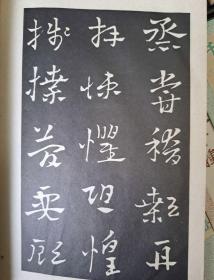 蒸嘗稽顙再
拜悚懼恐惶
牋牒簡要顧